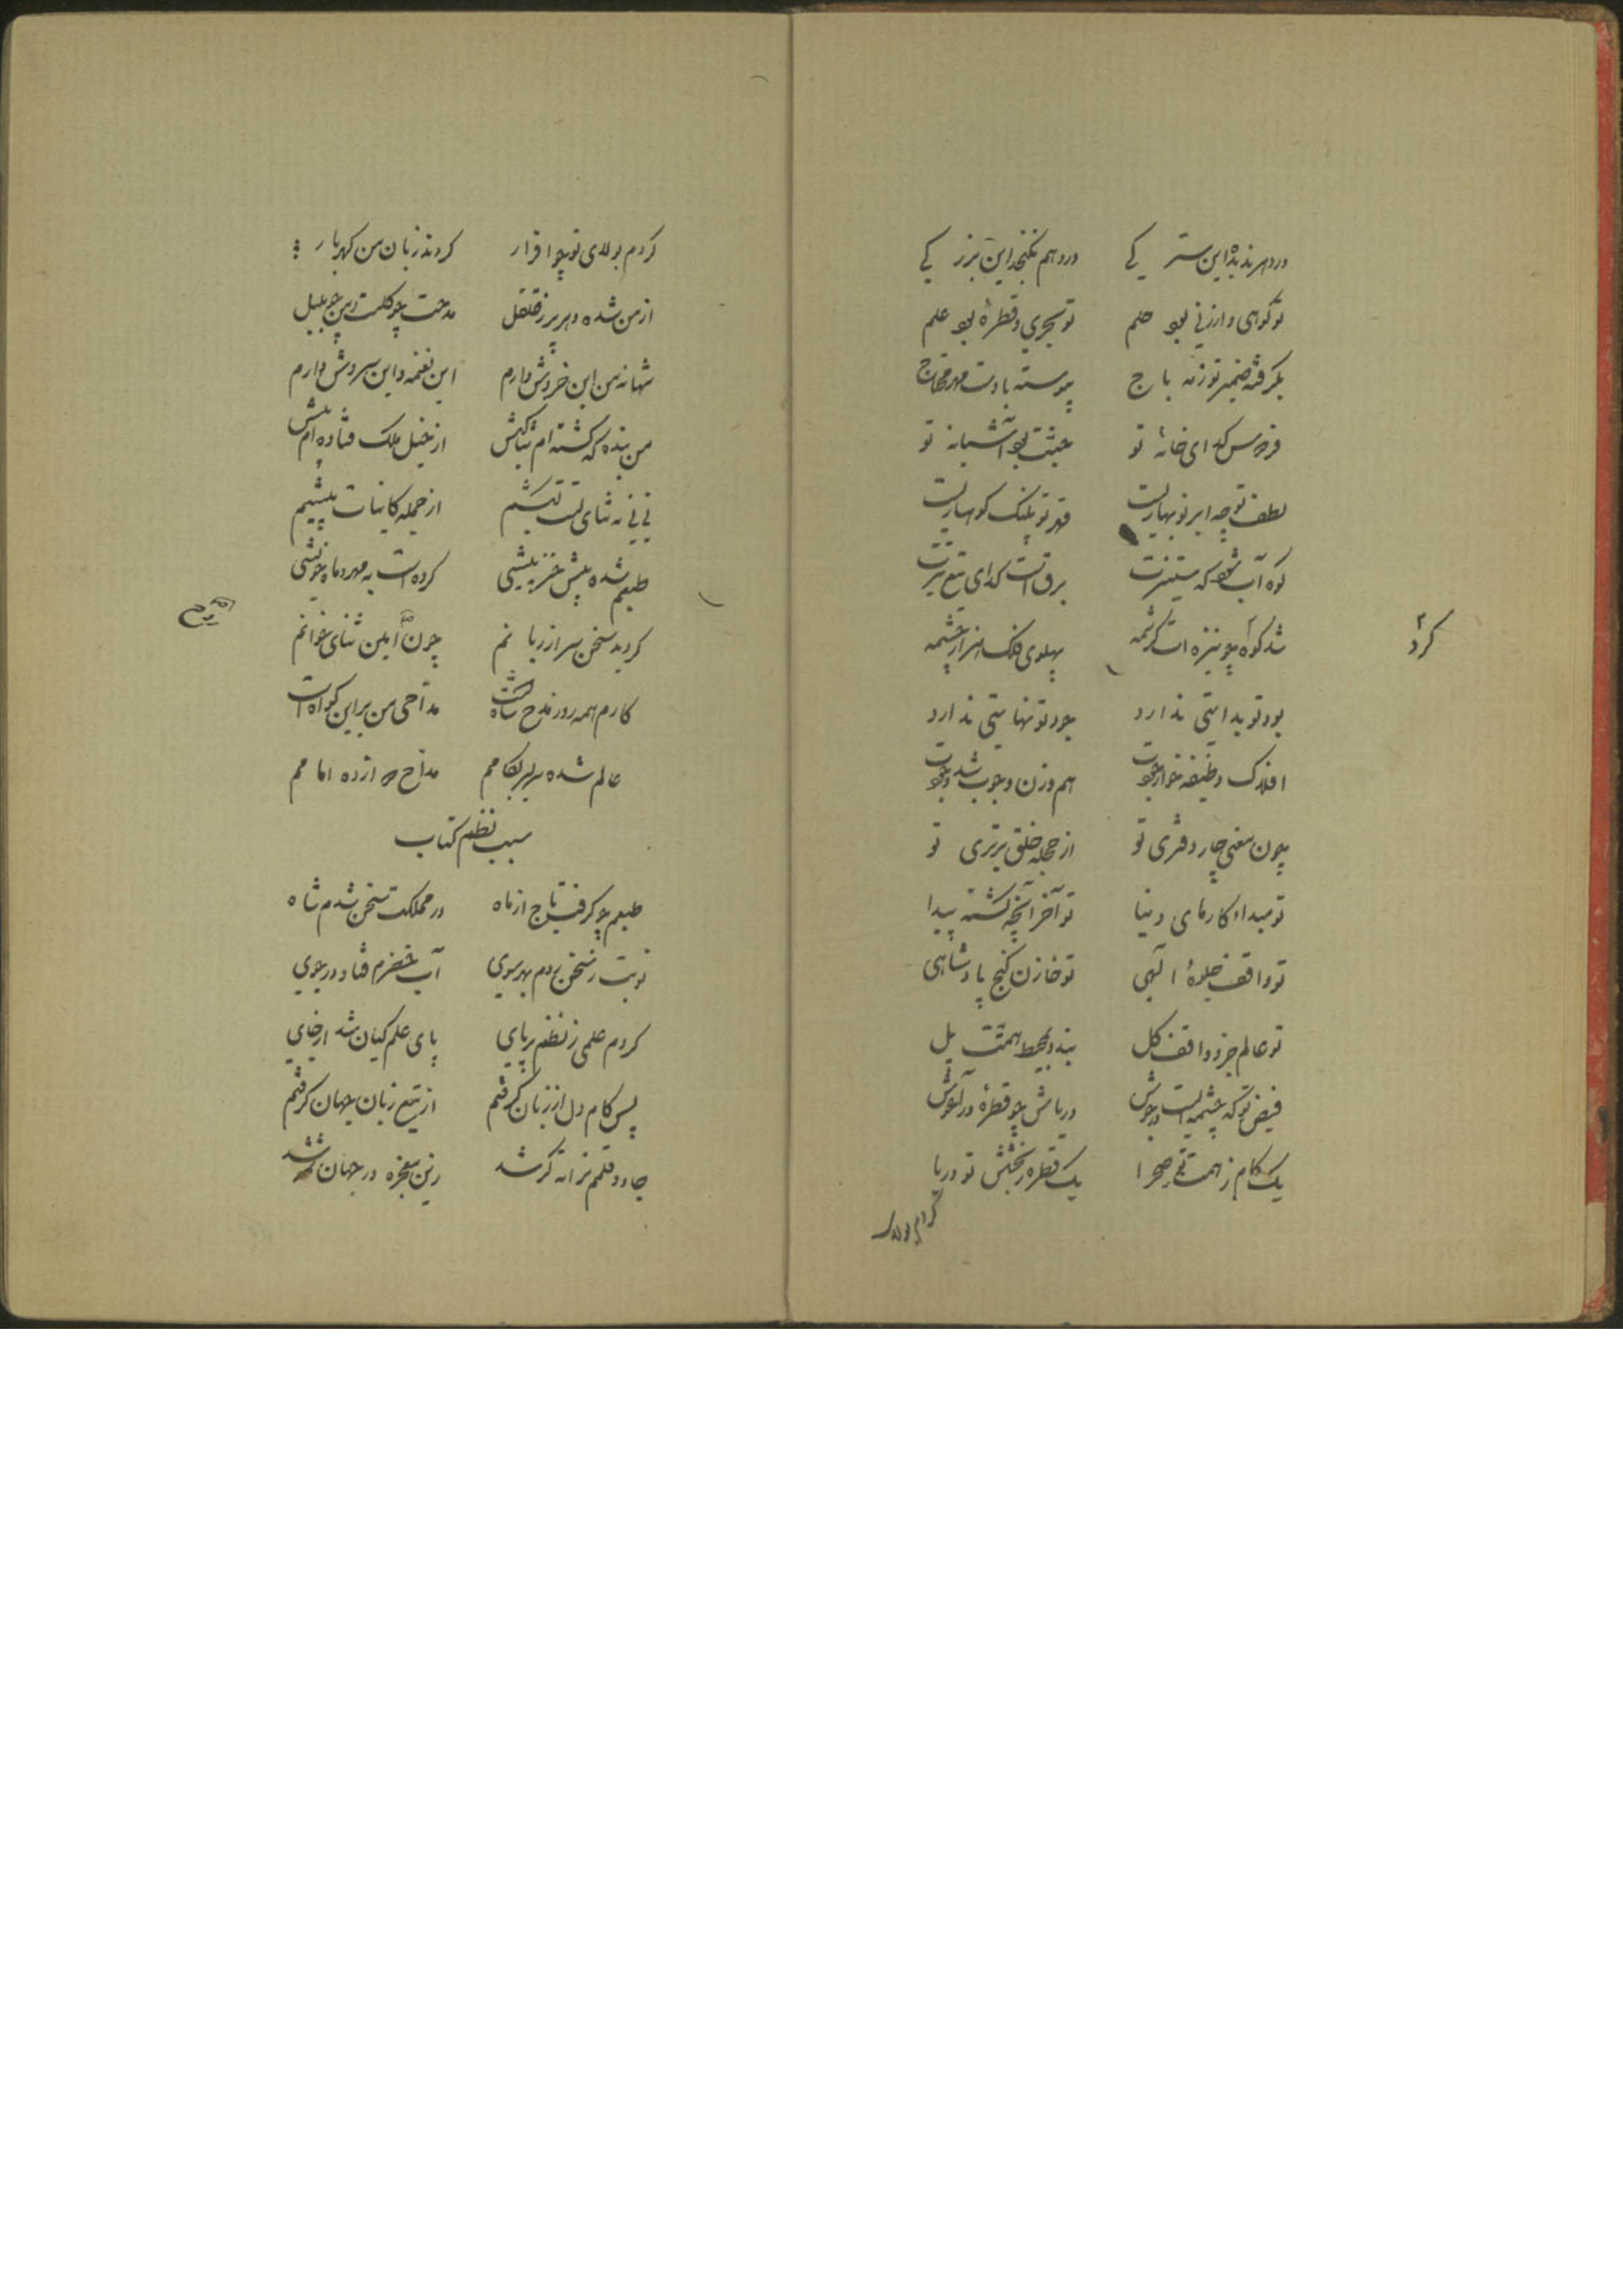 در دهر ندیده این ستر کی در وهم نگنجد این بزر کی
تو کوهی و ارزنی بود حلم تو بحری و قطرهٔ بود علم
بگرفته ضمیر تو زمه باج پیوسته بادت مهر محتاج
فردوس کدای خانهٔ تو جنت بود آشیانه تو
لطف تو چه ابر نوبهاریست قهر تو پلنک کوهساریست
کوه آب شود که ستیزت برق است کدای تیغ تیزت
شد کوه چو نیزه ات کرشمه پهلوی فلک هزار چشمه
کرد
بود تو بدایتی ندارد جود تو نهایتی ندارد
افلاک وظیفه خوار جودت هم وزن وجوب شد وجودت
چون معنی چار دفتری تو از جمله خلق برتری تو
تو مبداء کارهای دنیا تو آخر آنچه کشته پیدا
تو واقف جلوهٔ الهی تو خازن کنج پادشاهی
تو عالم جزو و واقف کل بندد بمحیط همتت پل
فیض تو که چشمه ایست در جوش دریاش چو قطرهٔ در آغوش
یک کام ز همت تو صحرا یک قطره ز بخشش تو دریا
کردم بولای
کردم بولای تو چو اقرار کردند زبان من کهربار
از من شده دهر پر ز قلقل مدحت چو کلست و من چو بلبل
شهانه من این خروش دارم این نغمه و این سروش دارم
من بنده که کشته ام ثناکیش از خیل ملک فتاده ام پیش
نی نی نه ثنای تست کیشم از جمله کاینات پیشم
طبعم شده پیش خیز پیشی کرده است به مهر و ماه خویشی
کردید سخن سر از زبانم چون ایلن ثنای خوانم
کارم همه روز مدح شاهست مداحی من بر این کواه است
عالم شده سربسر بکامم مداح دوازده امامم
سبب نظم کتاب
طبعم چو کرفت تاج از ماه در مملکت سخن شدم شاه
نوبت ز سخن زدم بهر سوی آب خضرم فتاد در جوی
کردم علمی ز نظم بر پای پای علم کیان شد از جای
پس کام دل از زبان کرفتم از تیغ زبان جهان کرفتم
جادو قلمم ترانه کر شد زین معجزه در جهان شد